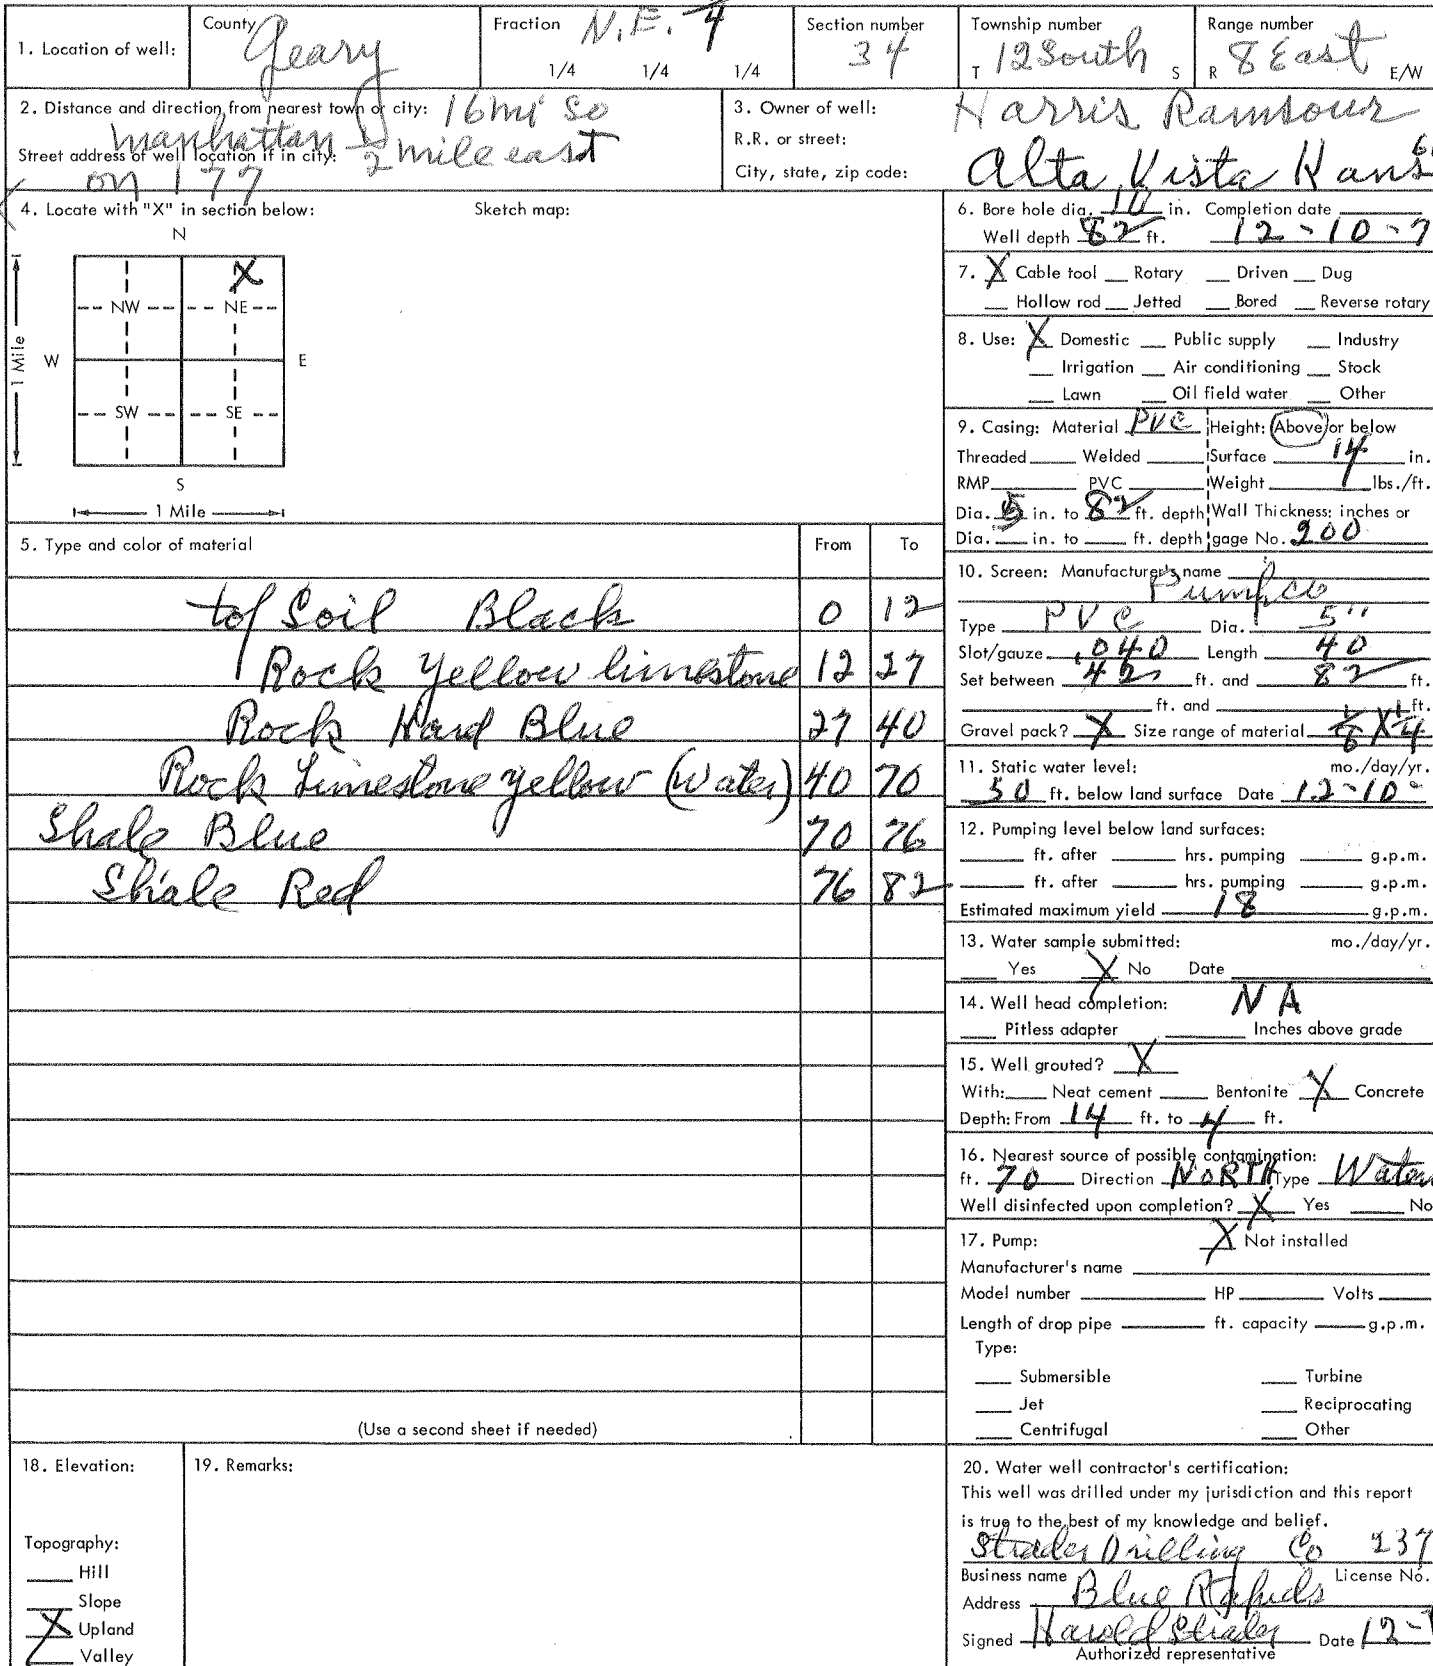 1. Location of well: County Geary Fraction N.E. 4 1/4 1/4 1/4 Section number 34 Township number T 12 South S Range number R 8 East E/W
2. Distance and direction from nearest town or city: 16 mi So
manhattan 1/2 mile east
Street address of well location if in city:
on 177
3. Owner of well: Harris Ramsour
R.R. or street:
City, state, zip code: Alta Vista Kans
4. Locate with "X" in section below: Sketch map:
N
X
NW NE
W E
1 Mile
SW SE
S
1 Mile
5. Type and color of material From To
top Soil Black 0 12
Rock Yellow limestone 12 27
Rock Hard Blue 27 40
Rock Limestone yellow (Water) 40 70
Shale Blue 70 76
Shale Red 76 82
(Use a second sheet if needed)
6. Bore hole dia. 10 in. Completion date
Well depth 82 ft. 12-10-7
7. X Cable tool Rotary Driven Dug
Hollow rod Jetted Bored Reverse rotary
8. Use: X Domestic Public supply Industry
Irrigation Air conditioning Stock
Lawn Oil field water Other
9. Casing: Material PVC Height: Above or below
Threaded Welded Surface 14 in.
RMP PVC Weight lbs./ft.
Dia. 5 in. to 82 ft. depth Wall Thickness: inches or
Dia. in. to ft. depth gage No. 200
10. Screen: Manufacturer's name
Pumpco
Type PVC Dia. 5"
Slot/gauze .040 Length 40
Set between 42 ft. and 82 ft.
ft. and ft.
Gravel pack? X Size range of material 1/8 X 1/4
11. Static water level: mo./day/yr.
50 ft. below land surface Date 12-10-
12. Pumping level below land surfaces:
ft. after hrs. pumping g.p.m.
ft. after hrs. pumping g.p.m.
Estimated maximum yield 18 g.p.m.
13. Water sample submitted: mo./day/yr.
Yes X No Date
14. Well head completion: NA
Pitless adapter Inches above grade
15. Well grouted? X
With: Neat cement Bentonite X Concrete
Depth: From 14 ft. to 4 ft.
16. Nearest source of possible contamination:
ft. 70 Direction NORTH Type Water
Well disinfected upon completion? X Yes No
17. Pump: X Not installed
Manufacturer's name
Model number HP Volts
Length of drop pipe ft. capacity g.p.m.
Type:
Submersible Turbine
Jet Reciprocating
Centrifugal Other
18. Elevation:
Topography:
Hill
Slope
X Upland
Valley
19. Remarks:
20. Water well contractor's certification:
This well was drilled under my jurisdiction and this report
is true to the best of my knowledge and belief.
Strader Drilling Co 237
Business name License No.
Address Blue Rapids
Signed Harold Strader Date 12-
Authorized representative